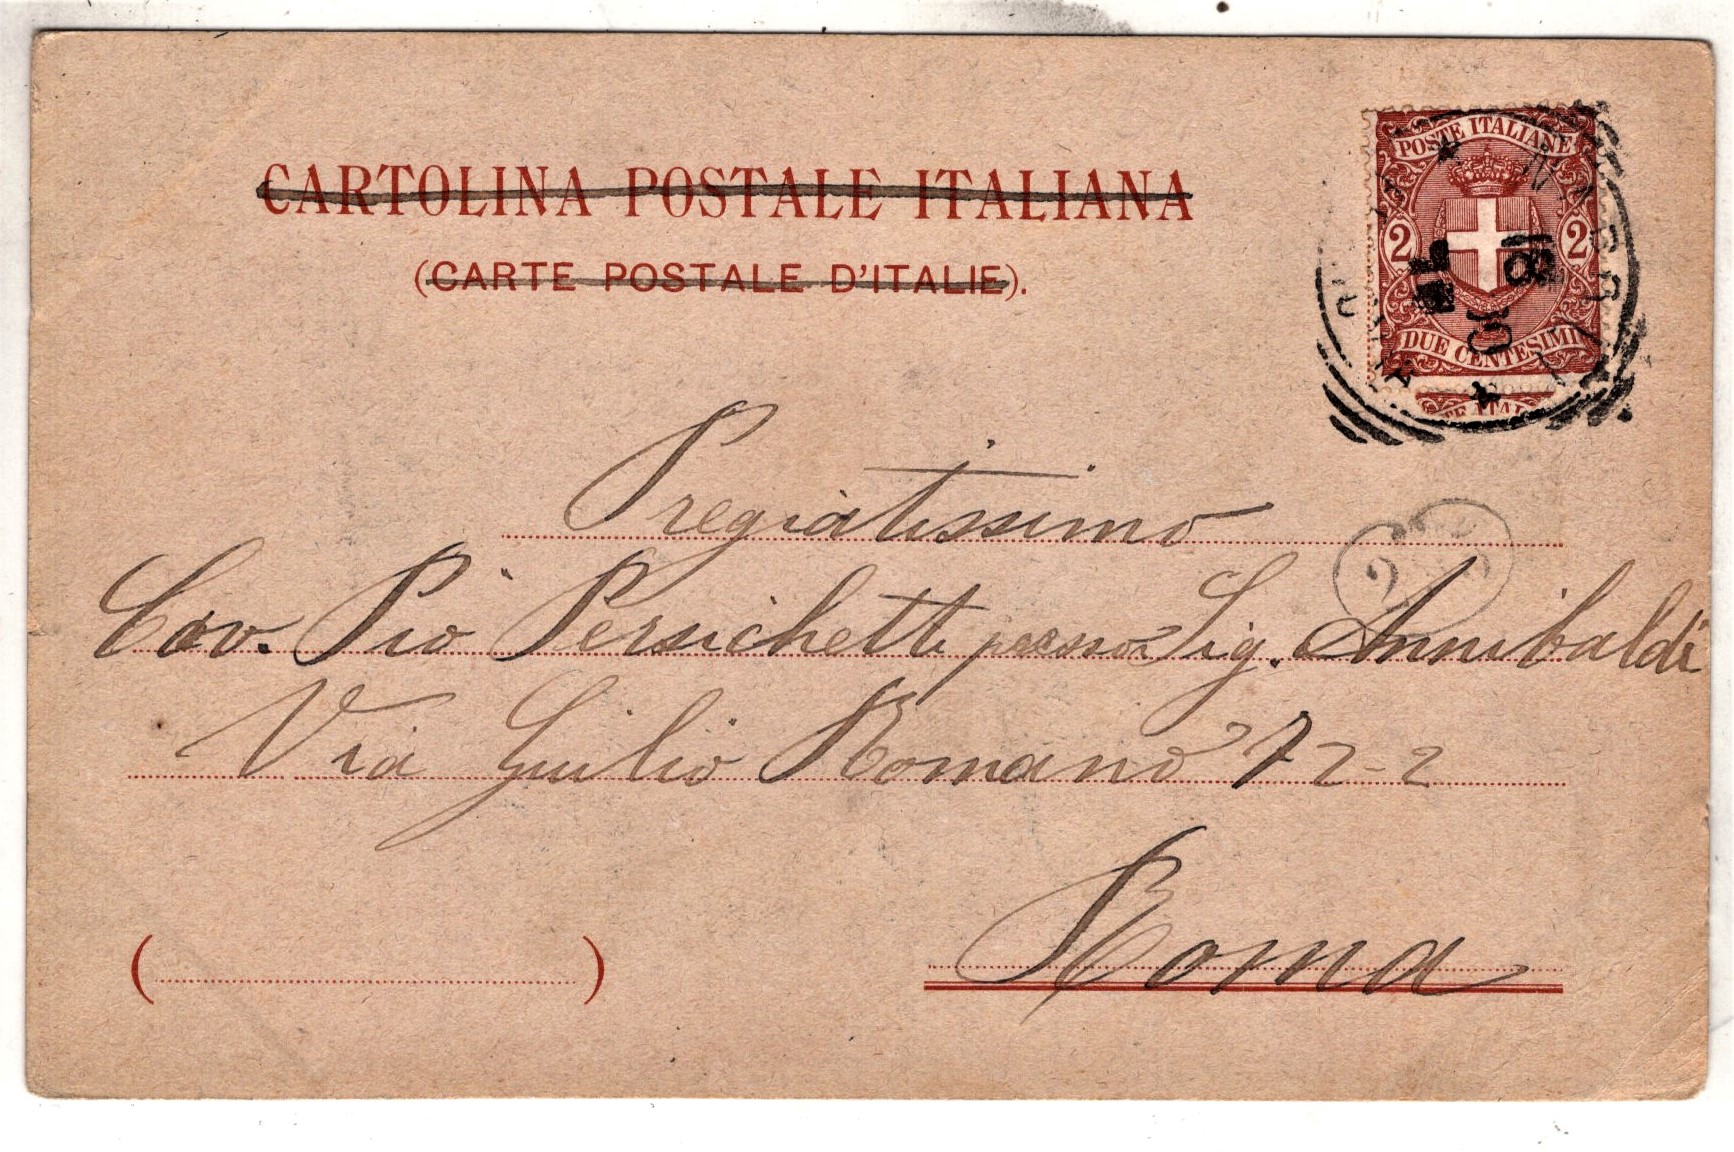 CARTOLINA POSTALE ITALIANA
(CARTE POSTALE D'ITALIE).
POSTE ITALIANE
2 2
DUE CENTESIMI
Pregiatissimo
Cav. Pio Persichetti presso Sig. Annibaldi
Via Giulio Romano 72-2
Roma